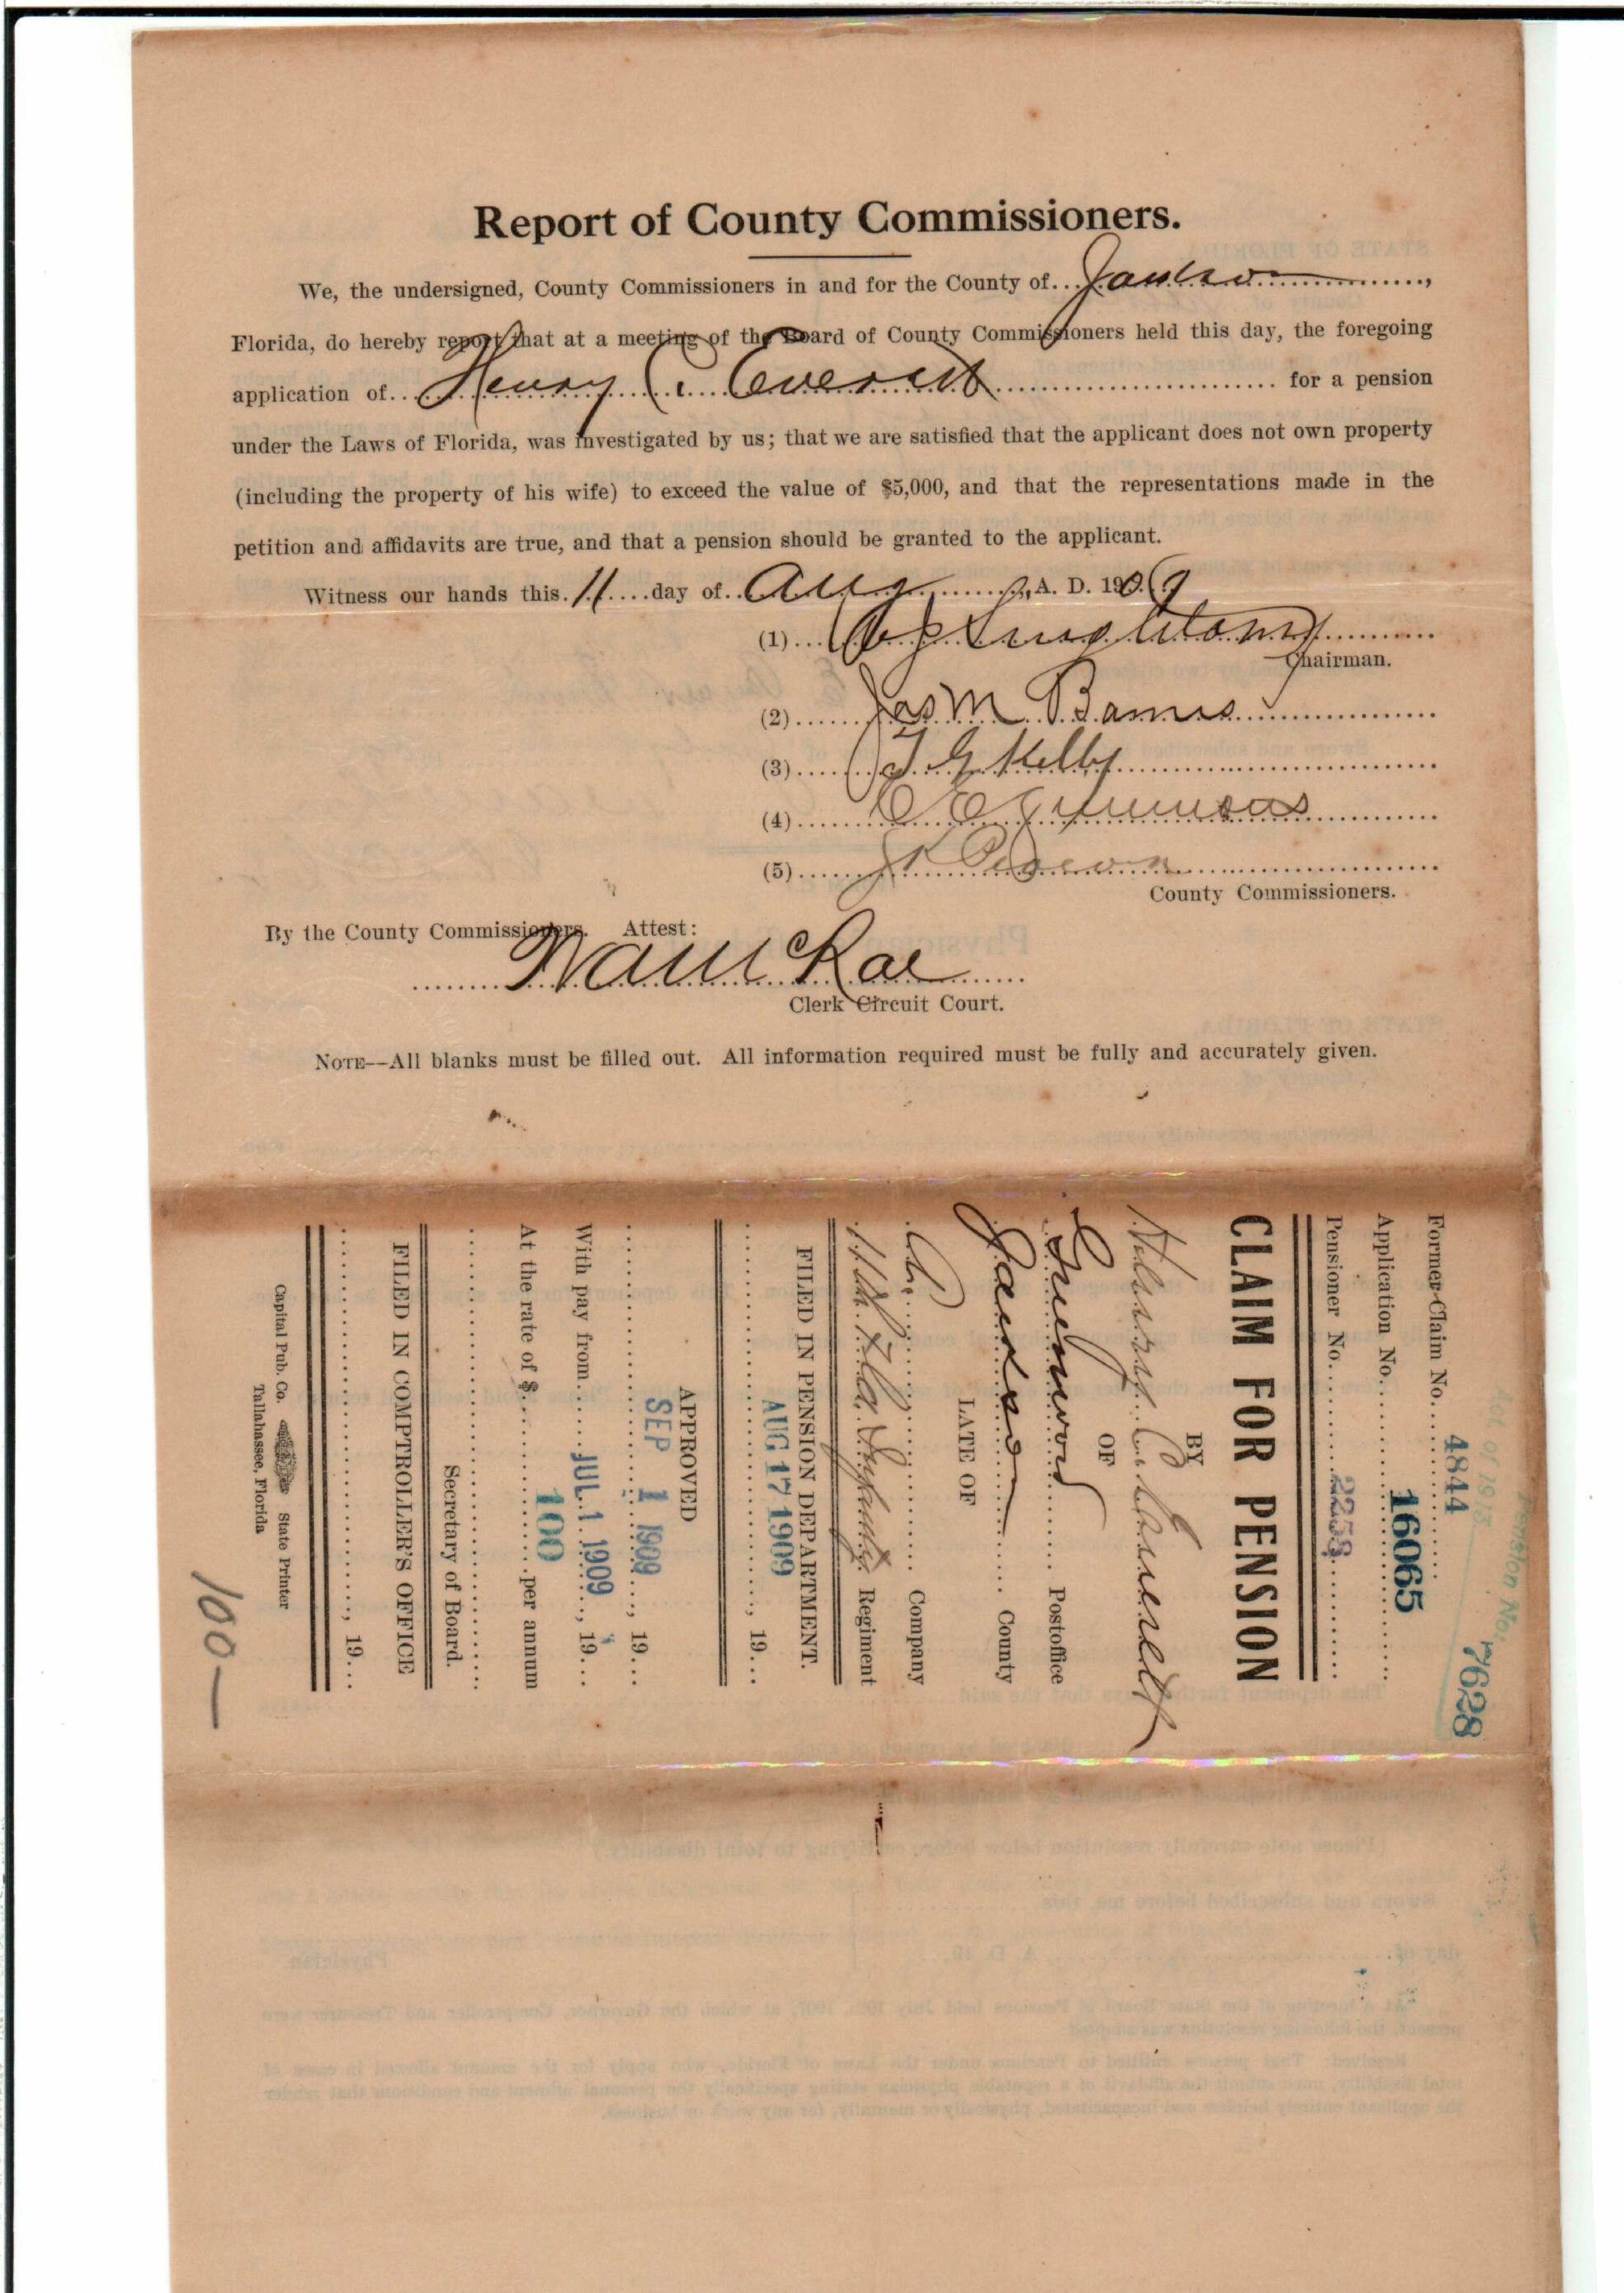 Report of County Commissioners.
We, the undersigned, County Commissioners in and for the County of...Jackson.............,
Florida, do hereby report that at a meeting of the Board of County Commissioners held this day, the foregoing
application of...Henry C. Everett............................ for a pension
under the Laws of Florida, was investigated by us; that we are satisfied that the applicant does not own property
(including the property of his wife) to exceed the value of $5,000, and that the representations made in the
petition and affidavits are true, and that a pension should be granted to the applicant.
Witness our hands this.11....day of..Aug........., A. D. 1909
(1)...
Chairman.
(2)......Jas M Barnes
(3)......J G Kelly
(4)......C C Timmons
(5)......
County Commissioners.
By the County Commissioners. Attest:
Clerk Circuit Court.
NOTE--All blanks must be filled out. All information required must be fully and accurately given.
Act of 1913
Pension No. 7628
Former Claim No. 4844
Application No. 16065
Pensioner No. 2258
CLAIM FOR PENSION
BY
Henry C. Everett
OF
Greenwood Postoffice
Jackson County
LATE OF
A. Company
11th Fla. Infantry. Regiment
FILED IN PENSION DEPARTMENT.
AUG 17 1909 , 19...
APPROVED
SEP 1 1909 , 19...
With pay from JUL 1 1909 , 19...
At the rate of $ 100 per annum
Secretary of Board.
FILED IN COMPTROLLER'S OFFICE
, 19...
Capital Pub. Co. State Printer
Tallahassee, Florida
100—